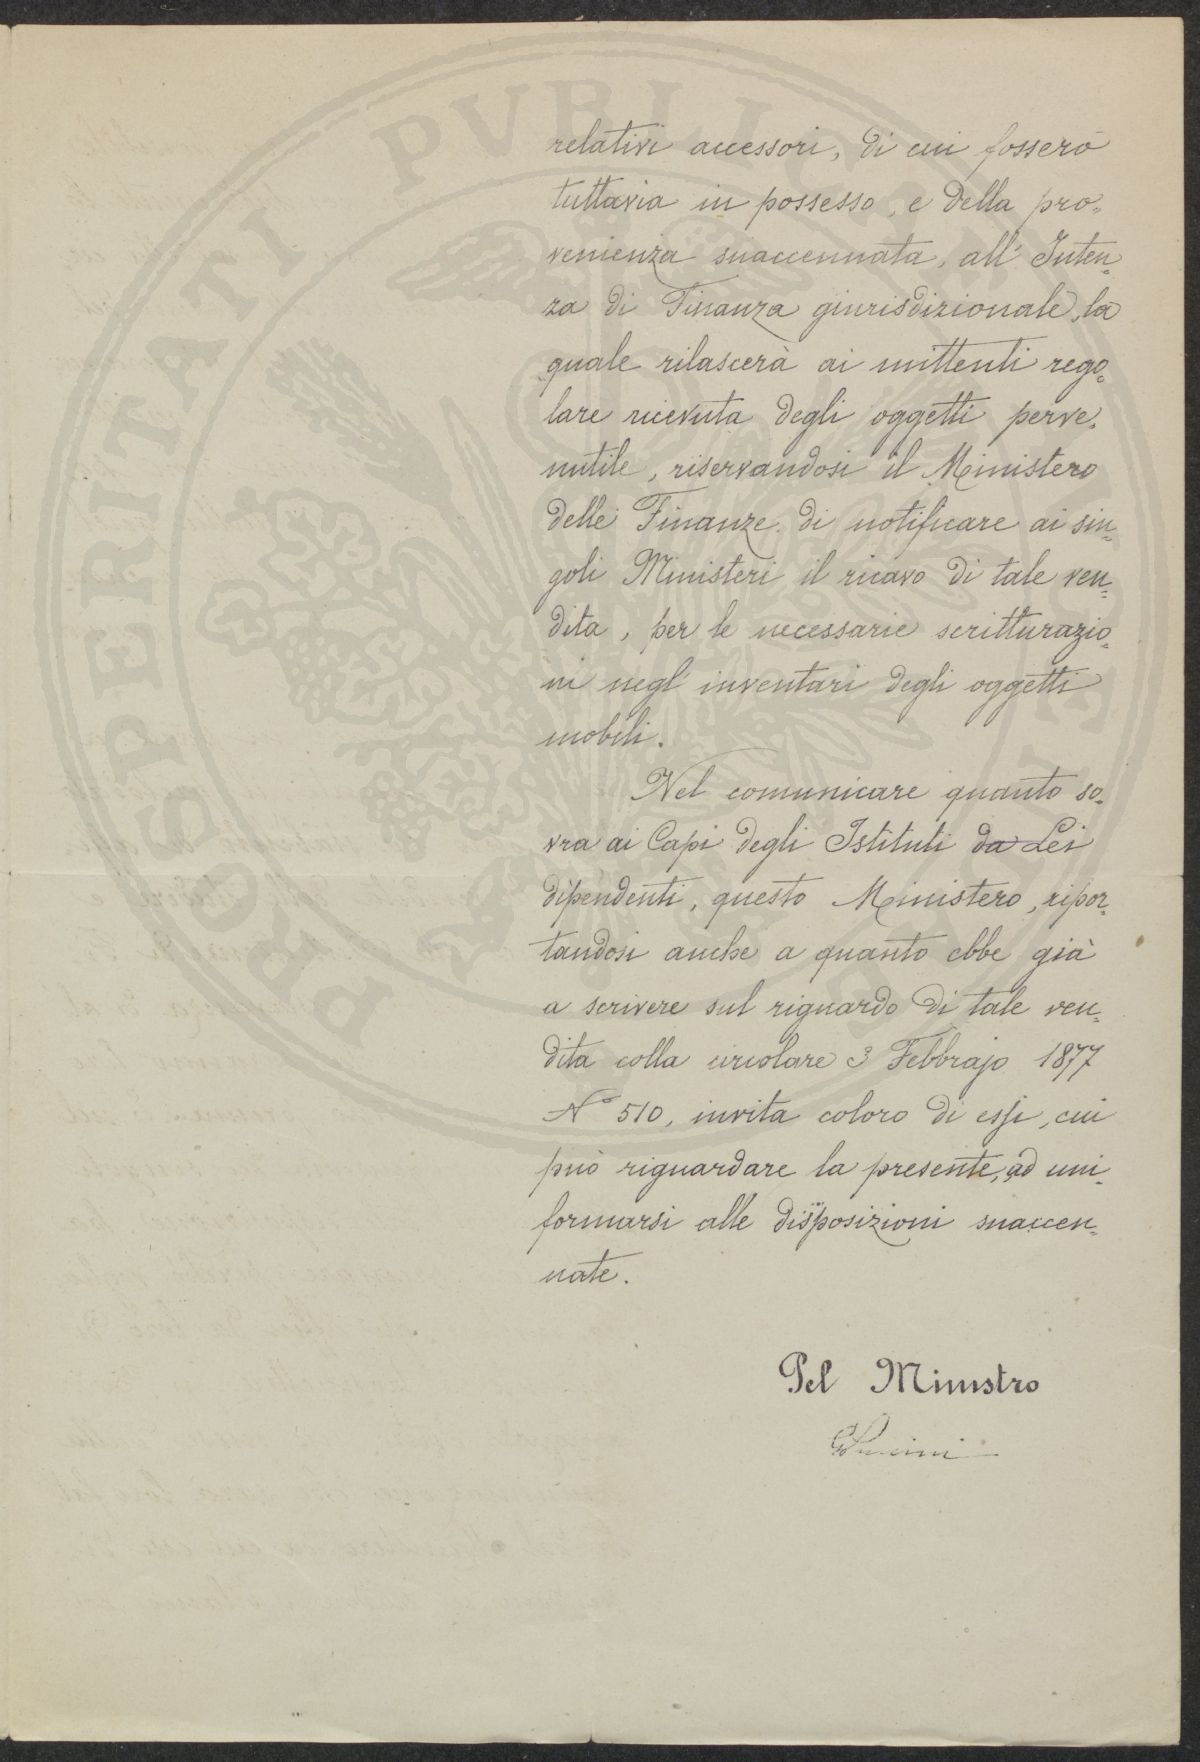 relativi accessori, di cui fossero
tuttavia in possesso, e della pro=
venienza suaccennata, all' Inten=
za di Finanza giurisdizionale, la
quale rilascerà ai mittenti rego=
lare ricevuta degli oggetti perve=
nutile, riservandosi il Ministero
delle Finanze di notificare ai sin=
goli Ministeri il ricavo di tale ven=
dita, per le necessarie scritturazio=
ni negl' inventari degli oggetti
mobili.
Nel comunicare quanto so=
vra ai Capi degli Istituti da Lei
dipendenti, questo Ministero, ripor=
tandosi anche a quanto ebbe già
a scrivere sul riguardo di tale ven=
dita colla circolare 3 Febbrajo 1877
N° 510, invita coloro di essi, cui
può riguardare la presente, ad uni=
formarsi alle disposizioni suaccen=
nate.
Pel Ministro
PROSPERITATI PVBLICAE